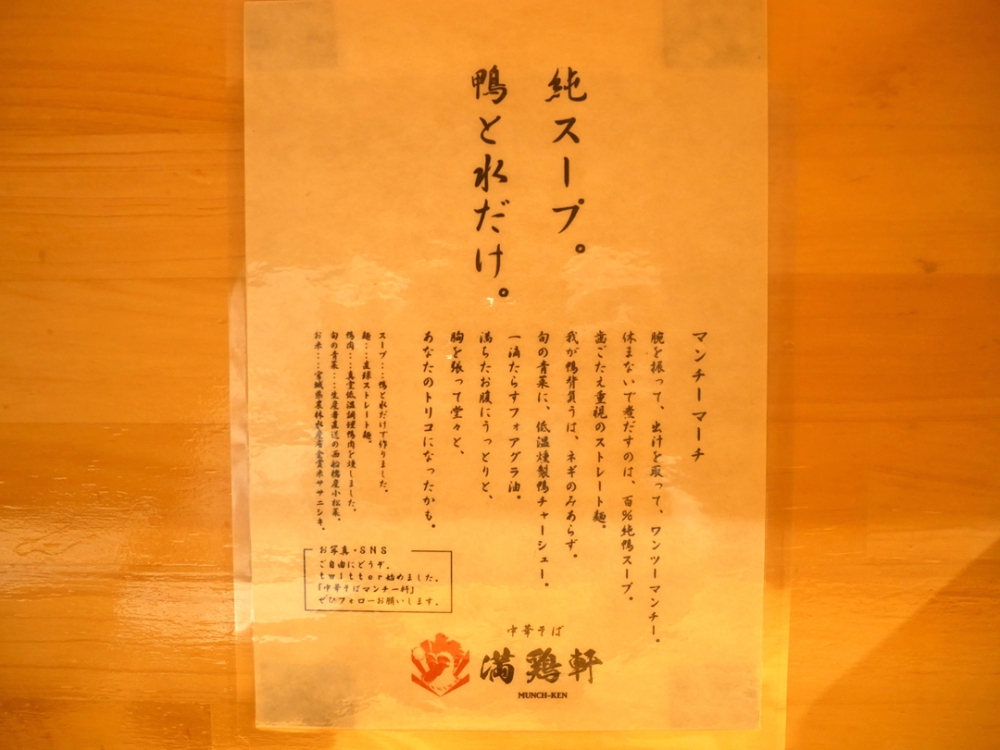 純スープ。
鴨と水だけ。
マンチーマーチ
腕を振って、出汁を取って、ワンツーマンチー。
休まないで煮だすのは、百%純鴨スープ。
歯ごたえ重視のストレート麺。
我が鴨背負うは、ネギのみあらず。
旬の青菜に、低温燻製鴨チャーシュー。
一滴たらすフォアグラ油。
満ちたお腹にうっとりと、
胸を張って堂々と、
あなたのトリコになったかも。
スープ・・・鴨と水だけで作りました。
麺・・・直球ストレート麺。
鴨肉・・・真空低温調理鴨肉を燻しました。
旬の青菜・・・生産者直送の西船橋産小松菜。
お米・・・宮城県農林水産省金賞米ササニシキ。
お写真・SNS
ご自由にどうぞ。
twitter始めました。
「中華そばマンチー軒」
ぜひフォローお願いします。
中華そば
満鶏軒
MUNCH-KEN